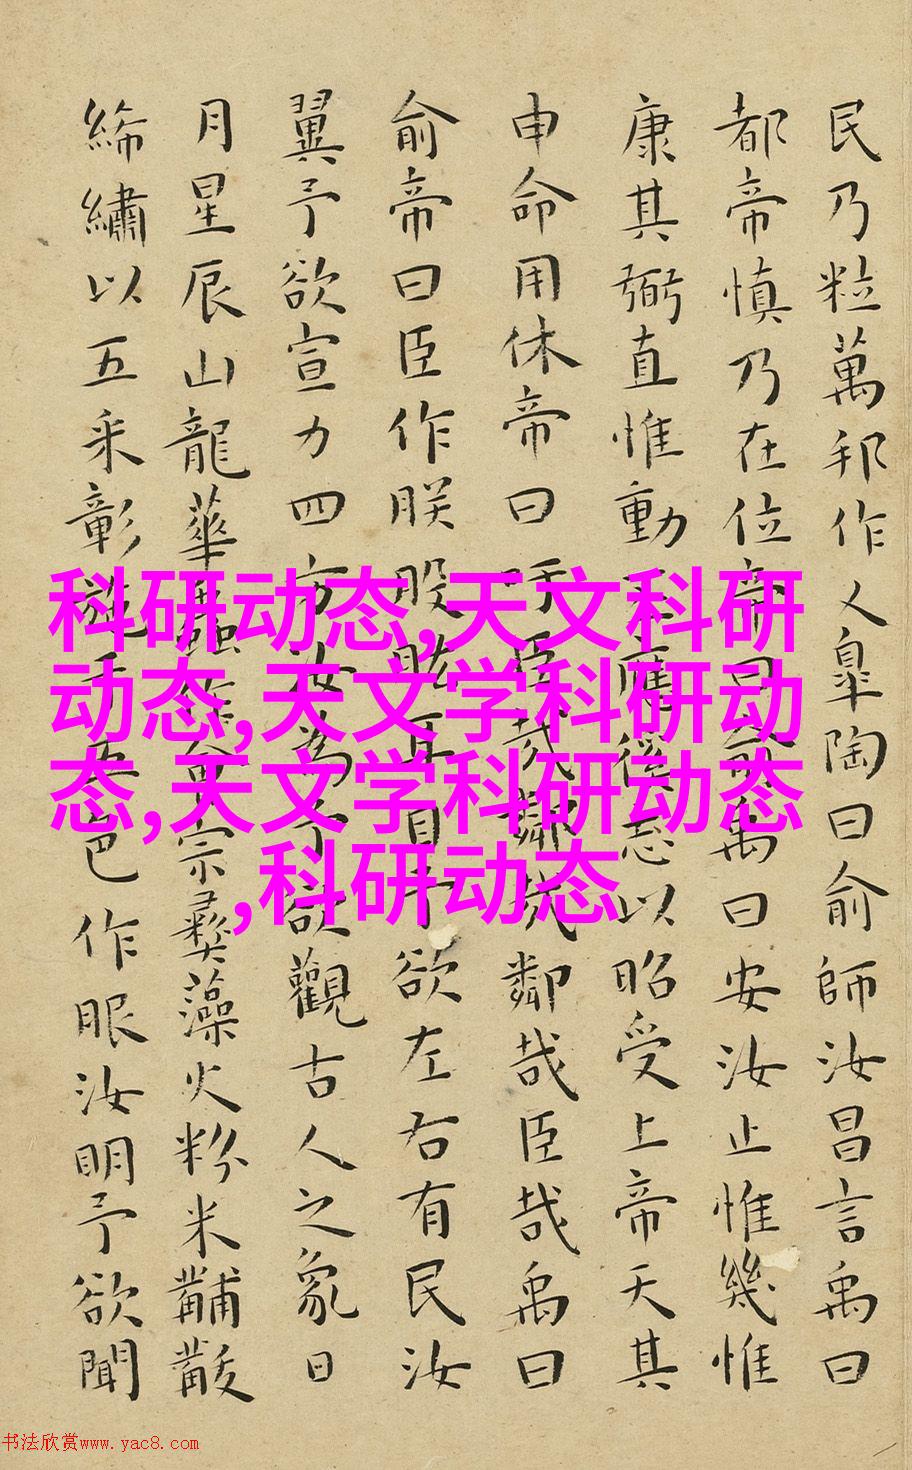 民乃粒萬邦作人皐陶曰俞師汝昌言禹曰
都帝慎乃在位帝曰俞禹曰安汝止惟幾惟
康其弼直惟動丕應徯志以昭受上帝天其
申命用休帝曰吁臣哉鄰哉鄰哉臣哉禹曰
俞帝曰臣作朕股肱耳目予欲左右有民汝
翼予欲宣力四方汝為予欲觀古人之象日
月星辰山龍華蟲作會宗彝藻火粉米黼黻
絺繡以五采彰施于五色作服汝明予欲聞
科研动态,天文科研
动态,天文学科研动
态,天文学科研动态
,科研动态
书法欣赏www.yac8.com